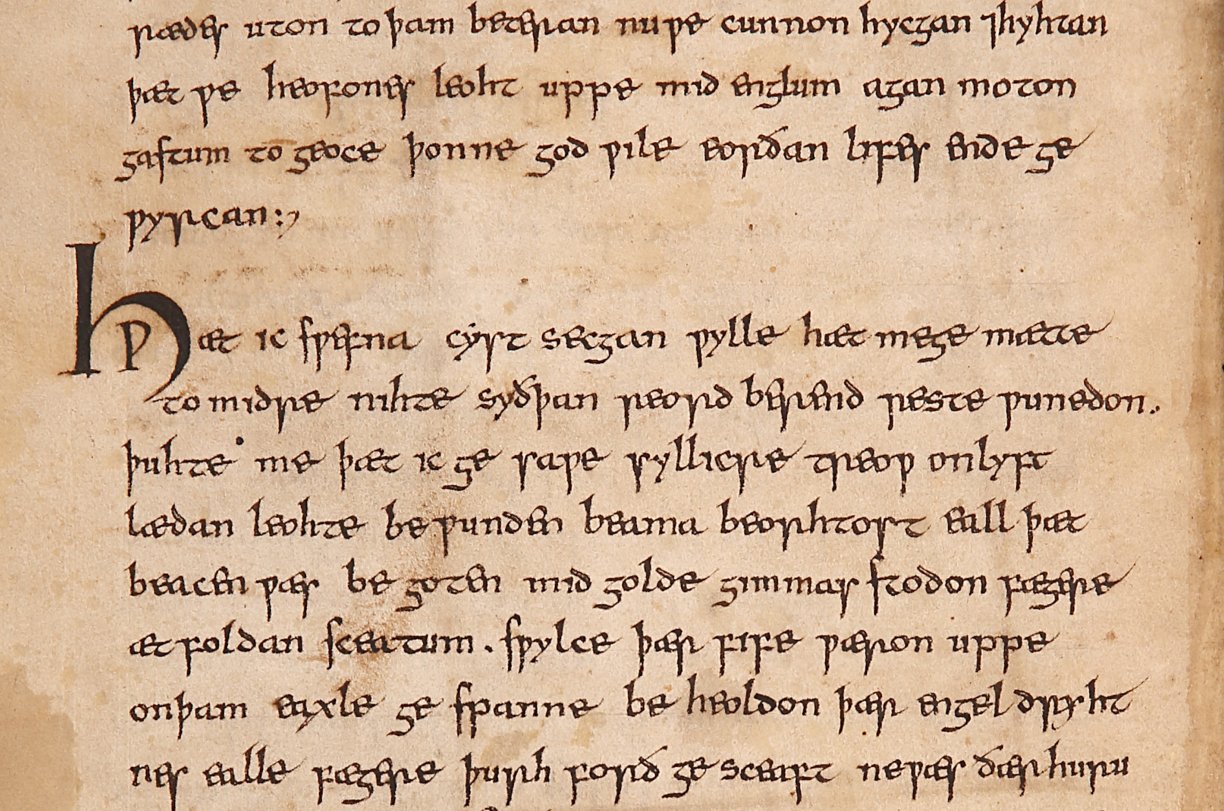 rædes uton to þam beteran nu ƿe cunnon hycgan ⁊ hyhtan
þæt ƿe heofones leoht uppe mid englum agan moton
gastum to geoce þonne god ƿile eorðan lifes ende ge
ƿyrcan:,
Hƿæt ic sƿefna cyst secgan ƿylle hæt me ge mætte
to midre nihte syðþan reord berend reste ƿunedon.,
þuhte me þæt ic ge saƿe syllicre treoƿ on lyft
lædan leohte be ƿunden beama beorhtost eall þæt
beacen ƿæs be goten mid golde gimmas stodon fægere
æt foldan sceatum. sƿylce þær fife ƿæron uppe
on þam eaxle ge sƿanne be heoldon þær engel dryht
nes ealle fægere þurh forð ge sceaft ne ƿæs ðær huru